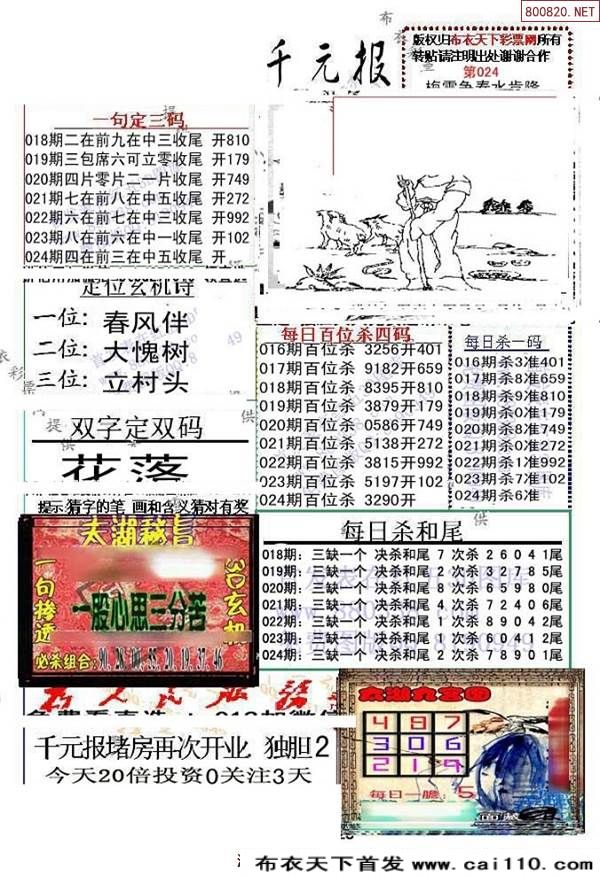 800820.NET
千元报
版权归布衣天下彩票网所有
转贴请注明出处谢谢合作
第024
梅雪争春水肯降
一句定三码
018期二在前九在中三收尾 开810
019期三包席六可立零收尾 开179
020期四片零片二一片收尾 开749
021期七在前八在中五收尾 开272
022期六在前七在中三收尾 开992
023期八在前六在中一收尾 开102
024期四在前三在中五收尾 开
定位玄机诗
一位: 春风伴
二位: 大愧树
三位: 立村头
双字定双码
花落
提示:猜字的笔 画和含义猜对有奖
每日百位杀四码
016期百位杀 3256开401
017期百位杀 9182开659
018期百位杀 8395开810
019期百位杀 3879开179
020期百位杀 0586开749
021期百位杀 5138开272
022期百位杀 3815开992
023期百位杀 5197开102
024期百位杀 3290开
每日杀一码
016期杀3准401
017期杀8准659
018期杀9准810
019期杀0准179
020期杀8准749
021期杀0准272
022期杀1准992
023期杀7准102
024期杀6准
每日杀和尾
018期: 三缺一个 决杀和尾 7 次杀 2 6 0 4 1尾
019期: 三缺一个 决杀和尾 2 次杀 1 3 7 8 5尾
020期: 三缺一个 决杀和尾 8 次杀 6 5 9 8 0尾
021期: 三缺一个 决杀和尾 4 次杀 7 2 4 0 6尾
022期: 三缺一个 决杀和尾 1 次杀 8 9 0 4 2尾
023期: 三缺一个 决杀和尾 1 次杀 0 9 4 2 1尾
024期: 三缺一个 决杀和尾 2 次杀 6 8 9 0 1尾
太湖藏
一句捺透
3D玄机
一股心思三分苦
必杀组合:90.26.00.55.20.19.37.46
太湖九宫图
4 8 7
3 0 6
2 1 9
每日一胆: 5
千元报堵房再次开业 独胆2
今天20倍投资0关注3天
布衣天下首发 www.cai110.com